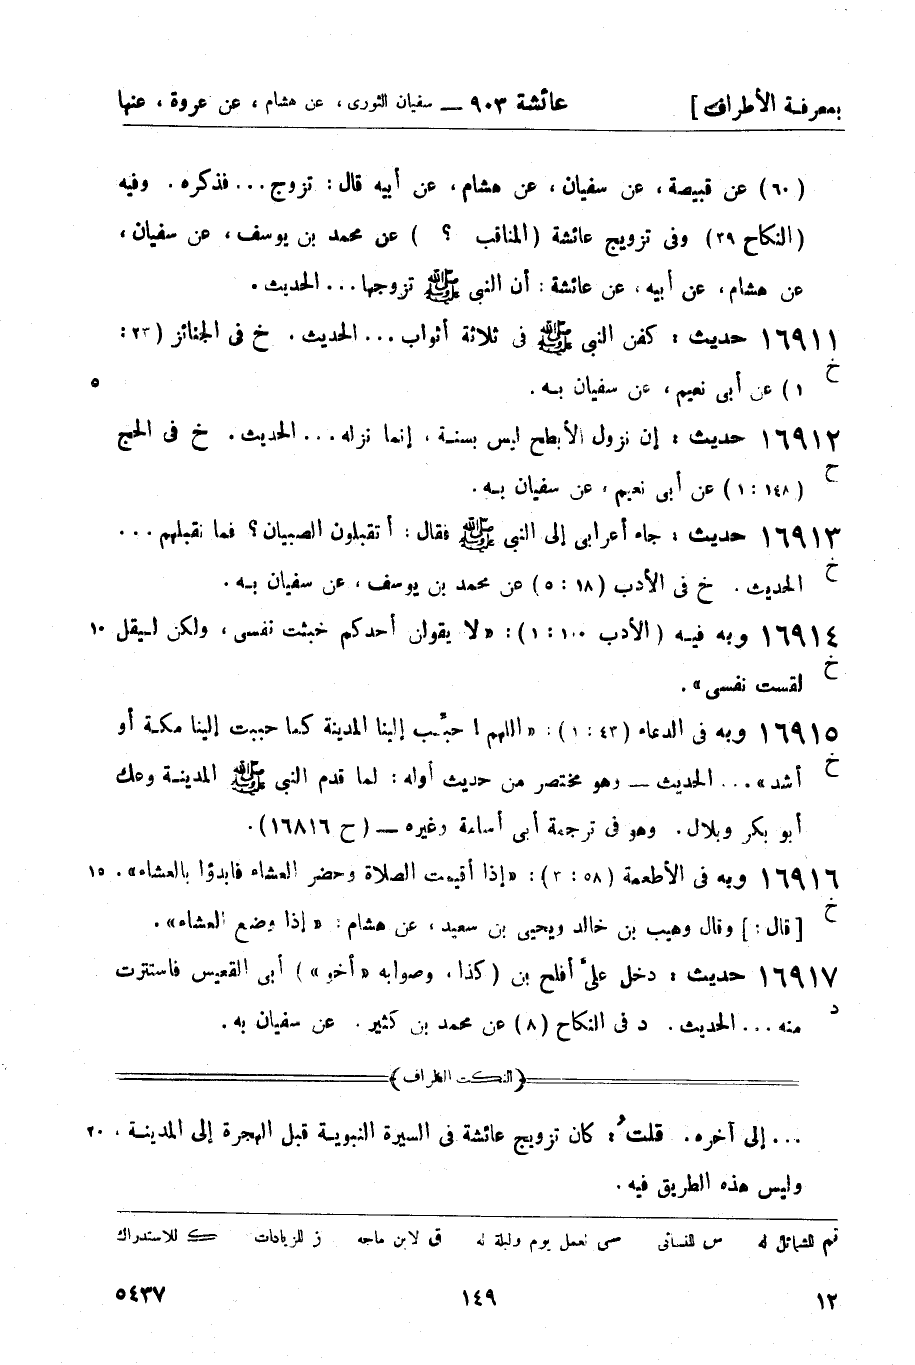 بمعرفة الأطراف ] عائشة ٩٠٣ — سفيان الثورى، عن هشام، عن عروة، عنها
(٦٠) عن قبيصة، عن سفيان، عن هشام، عن أبيه قال: تزوج... فذكره. وفيه
(النكاح ٣٩) وفى تزويج عائشة (المناقب ؟ ) عن محمد بن يوسف، عن سفيان،
عن هشام، عن أبيه، عن عائشة: أن النبى ﷺ تزوجها... الحديث.
١٦٩١١ حديث: كفن النبى ﷺ فى ثلاثة أثواب... الحديث. خ فى الجنائز (٢٣:
خ ١) عن أبى نعيم، عن سفيان بـه. ٥
١٦٩١٢ حديث: إن نزول الأبطح ليس بسنـة، إنما نزله... الحديث. خ فى الحج
ح (١٤٨: ١) عن أبى نعيم، عن سفيان بـه.
١٦٩١٣ حديث: جاء أعرابى إلى النبى ﷺ فقال: أتقبلون الصبيان؟ فما نقبلهم...
خ الحديث. خ فى الأدب (١٨: ٥) عن محمد بن يوسف، عن سفيان بـه.
١٦٩١٤ وبه فيـه (الأدب ١٠٠: ١): «لا يقولن أحدكم خبثت نفسى، ولكن لـيقل ١٠
خ لقست نفسى».
١٦٩١٥ وبه فى الدعاء (٤٣: ١): «اللهم! حبِّب إلينا المدينة كما حببت إلينا مكـة أو
خ أشد»... الحديث — وهو مختصر من حديث أوله: لما قدم النبى ﷺ المدينـة وعك
أبو بكر وبلال. وهو فى ترجمة أبى أسامة وغيره — (ح ١٦٨١٦).
١٦٩١٦ وبه فى الأطعمة (٥٨: ٣): «إذا أقيمت الصلاة وحضر العشاء فابدؤا بالعشاء». ١٥
خ [قال:] وقال وهيب بن خالد ويحيى بن سعيد، عن هشام: «إذا وضع العشاء».
١٦٩١٧ حديث: دخل علىّ أفلح بن (كذا، وصوابه «أخو») أبى القعيس فاستترت
د منه... الحديث. د فى النكاح (٨) عن محمد بن كثير. عن سفيان به.
(النكت الظراف)
... إلى آخره. قلتُ: كان تزويج عائشة فى السيرة النبويـة قبل الهجرة إلى المدينـة، ٢٠
وليس هذه الطريق فيه.
تم للشمائل له س للنسائى سى لعمل يوم وليلة له ق لابن ماجه ز للزيادات ك للاستدراك
١٢ ١٤٩ ٥٤٣٧